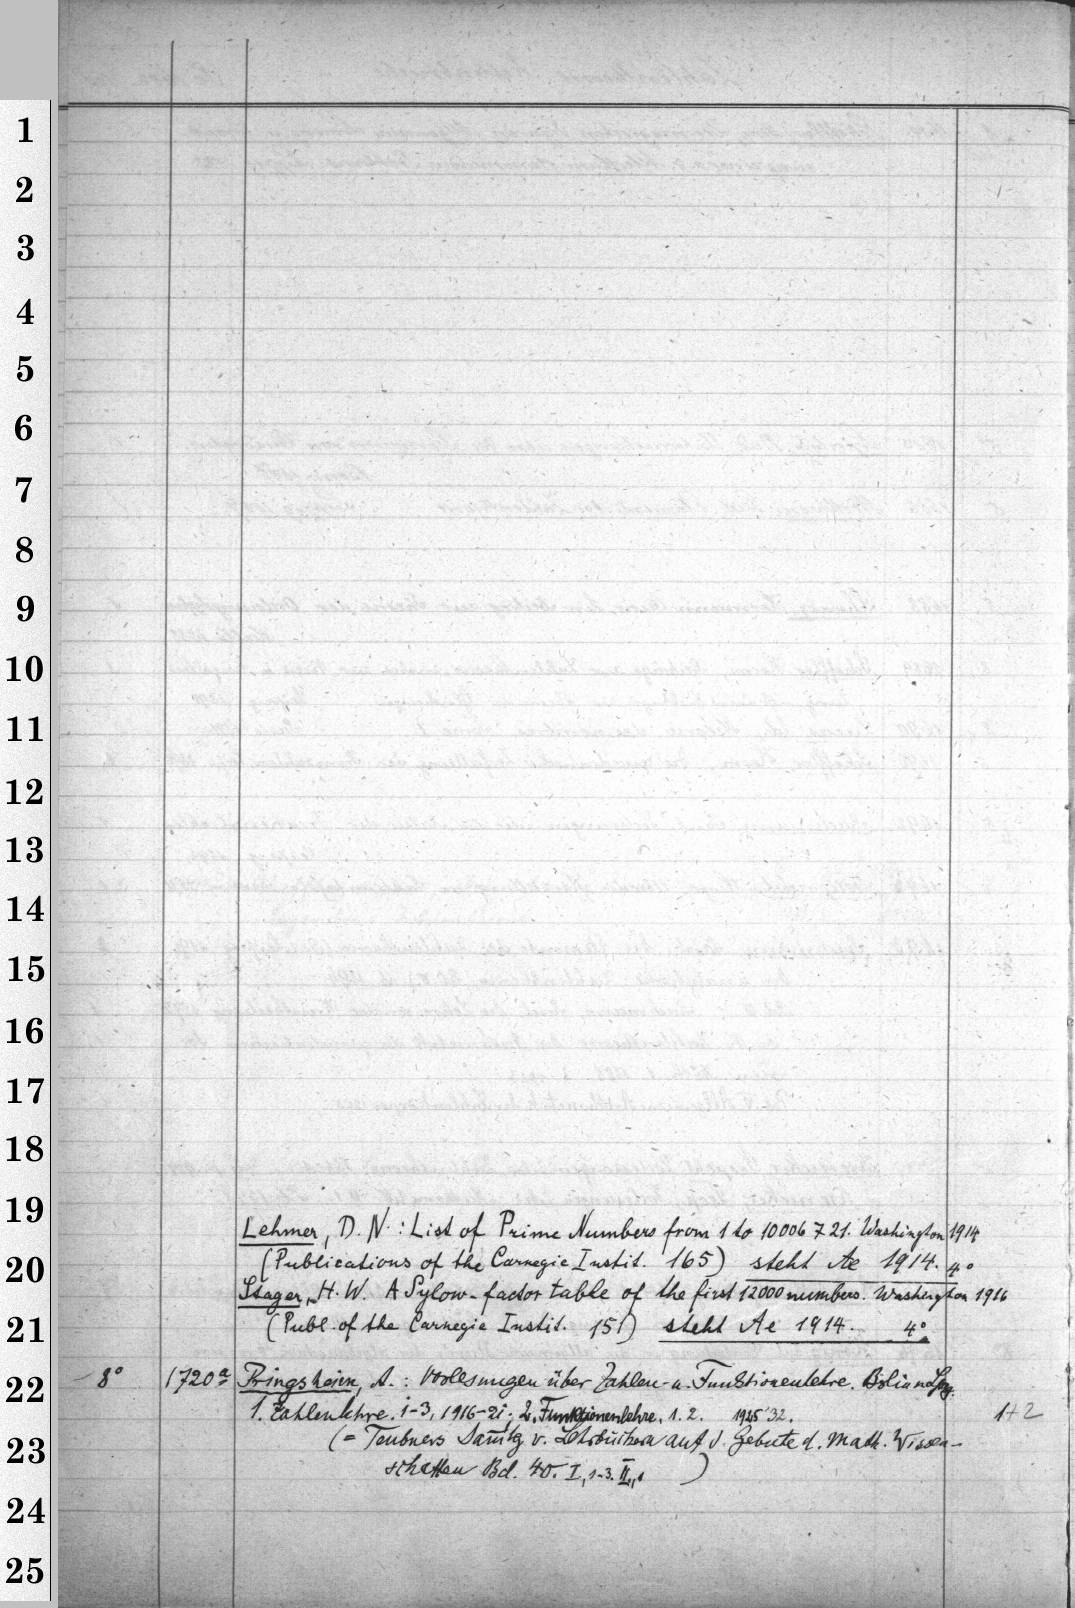 1
2
3
4
5
6
7
8
9
10
11
12
13
14
15
16
17
18
19
20
21
22
23
24
25
Lehmer, D. N.: List of Prime Numbers from 1 to 10006721. Washington 1914
(Publications of the Carnegie Instit. 165) steht Ae 1914. 4°
Stager, H. W. A Sylow-factor table of the first 12000 numbers. Washington 1916
(Publ. of the Carnegie Instit. 151) steht Ae 1914. 4°
8° 1720a Pringsheim, A.: Vorlesungen über Zahlen- u. Funktionenlehre. Lpg.
1. Zahlenlehre. 1-3, 1916-21; 2. Funktionenlehre. 1. 2. 1925 '32. 1+2
(= Teubners Samlg v. Lehrbüchern auf d. Gebiete d. Math. Wissen-
schaften Bd. 40. I, 1-3. II, 1 )